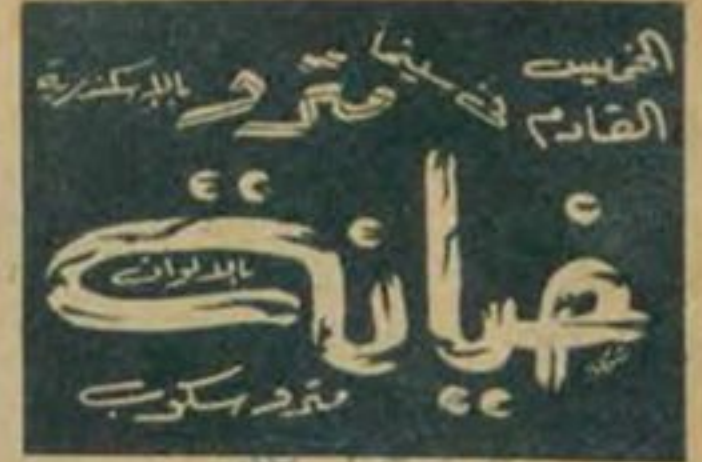 الخميس القادم
في سينما مترو بالإسكندرية
خيانة
بالألوان
مترو سكوب